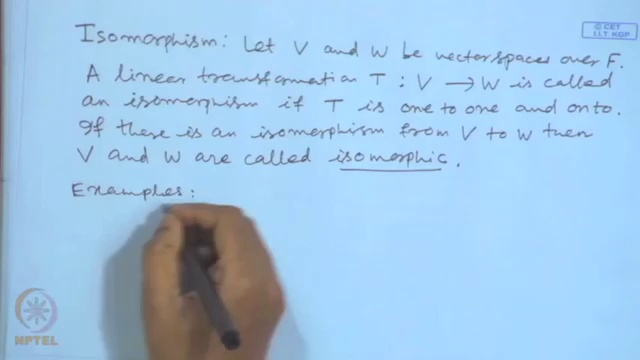 © CET
I.I.T. KGP
Isomorphism: Let V and W be vector spaces over F.
A linear transformation T : V → W is called
an isomorphism if T is one to one and onto.
If there is an isomorphism from V to W then
V and W are called isomorphic.
Examples:
NPTEL